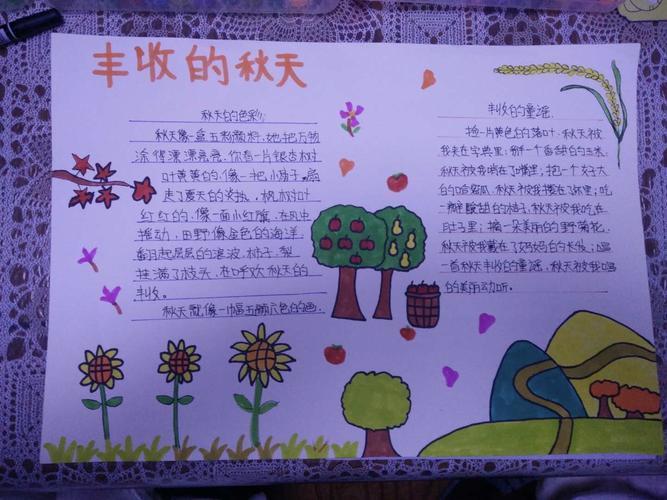 丰收的秋天
秋天的色彩
秋天像一盒五彩颜料，她把万物
涂得漂漂亮亮，你看一片银杏树
叶黄黄的，像一把小扇子，扇
走了夏天的炎热，枫树叶
红红的，像一面小红旗，在风中
摇动，田野像金色的海洋，
翻起层层的波浪，柿子、梨
挂满了枝头，在呼欢秋天的
丰收。
秋天就像一幅五颜六色的画。
丰收的童谣
捡一片黄色的落叶，秋天被
我夹在字典里；掰一个香甜的玉米，
秋天被我啃在了嘴里；抱一个大大
的哈密瓜，秋天被我搂在了怀里；吃
一瓣酸甜的桔子，秋天被我吃在
肚子里；摘一朵美丽的野菊花，
秋天被我戴在了妈妈的长发；唱
一首秋天丰收的童谣，秋天被我唱
的美丽动听。